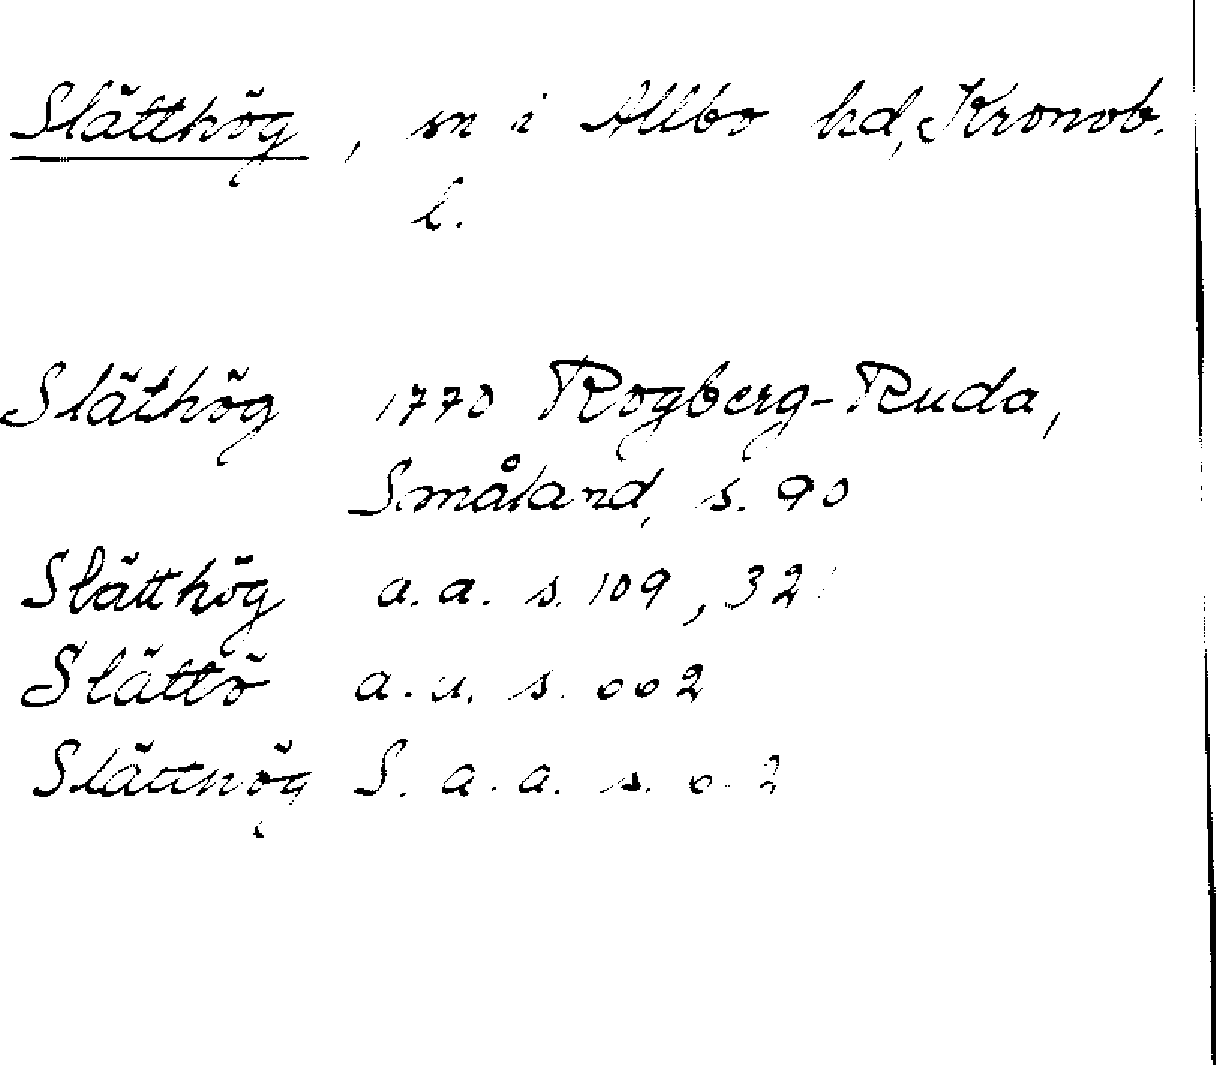 Slätthög, sn i Allbo hd, Kronob.
l.
Släthög 1770 Rogberg-Ruda,
Småland, s. 90
Slätthög a.a. s. 109, 32
Slättö a.a. s.
Slätthög S. a.a. s.